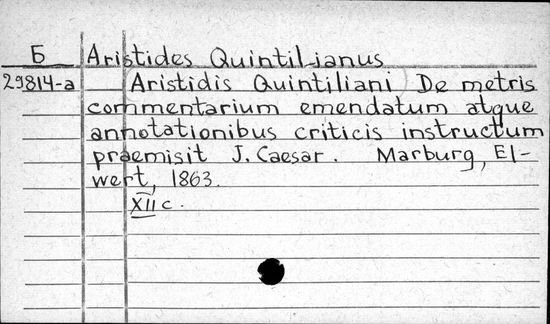 Б Aristides Quintilianus
29814-a Aristidis Quintiliani De metris
commentarium emendatum atque
annotationibus criticis instructum
praemisit J. Caesar. Marburg, El-
wert, 1863.
XII c.